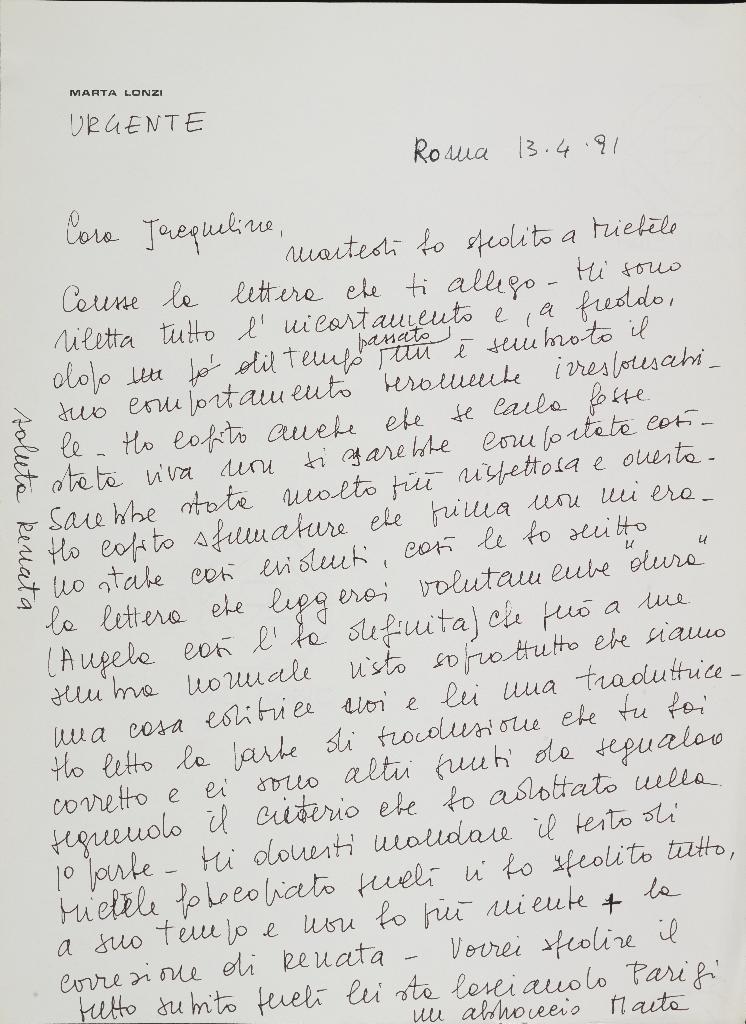 MARTA LONZI
URGENTE
Roma 13.4.91
Cara Jacqueline,
martedì ho spedito a Michèle
Causse la lettera che ti allego - Mi sono
riletta tutto l'incartamento e, a freddo,
dopo un pò di tempo passato mi è sembrato il
suo comportamento veramente irresponsabi-
le - Ho capito anche che se Carla fosse
stata viva non si sarebbe comportata così -
Sarebbe stata molto più rispettosa e onesta -
Ho capito sfumature che prima non mi era-
no state così evidenti, così le ho scritto
la lettera che leggerai volutamente "dura"
(Angela così l'ha definita) che però a me
sembra normale visto soprattutto che siamo
una casa editrice noi e lei una traduttrice -
Ho letto la parte di traduzione che tu hai
corretto e ci sono altri punti da segnalare
seguendo il criterio che ho adottato nella
1º parte - Mi dovresti mandare il testo di
Michèle fotocopiato perché vi ho spedito tutto,
a suo tempo e non ho più niente + la
correzione di Renata - Vorrei spedire il
tutto subito perché lei sta lasciando Parigi
un abbraccio Marta
saluta Renata